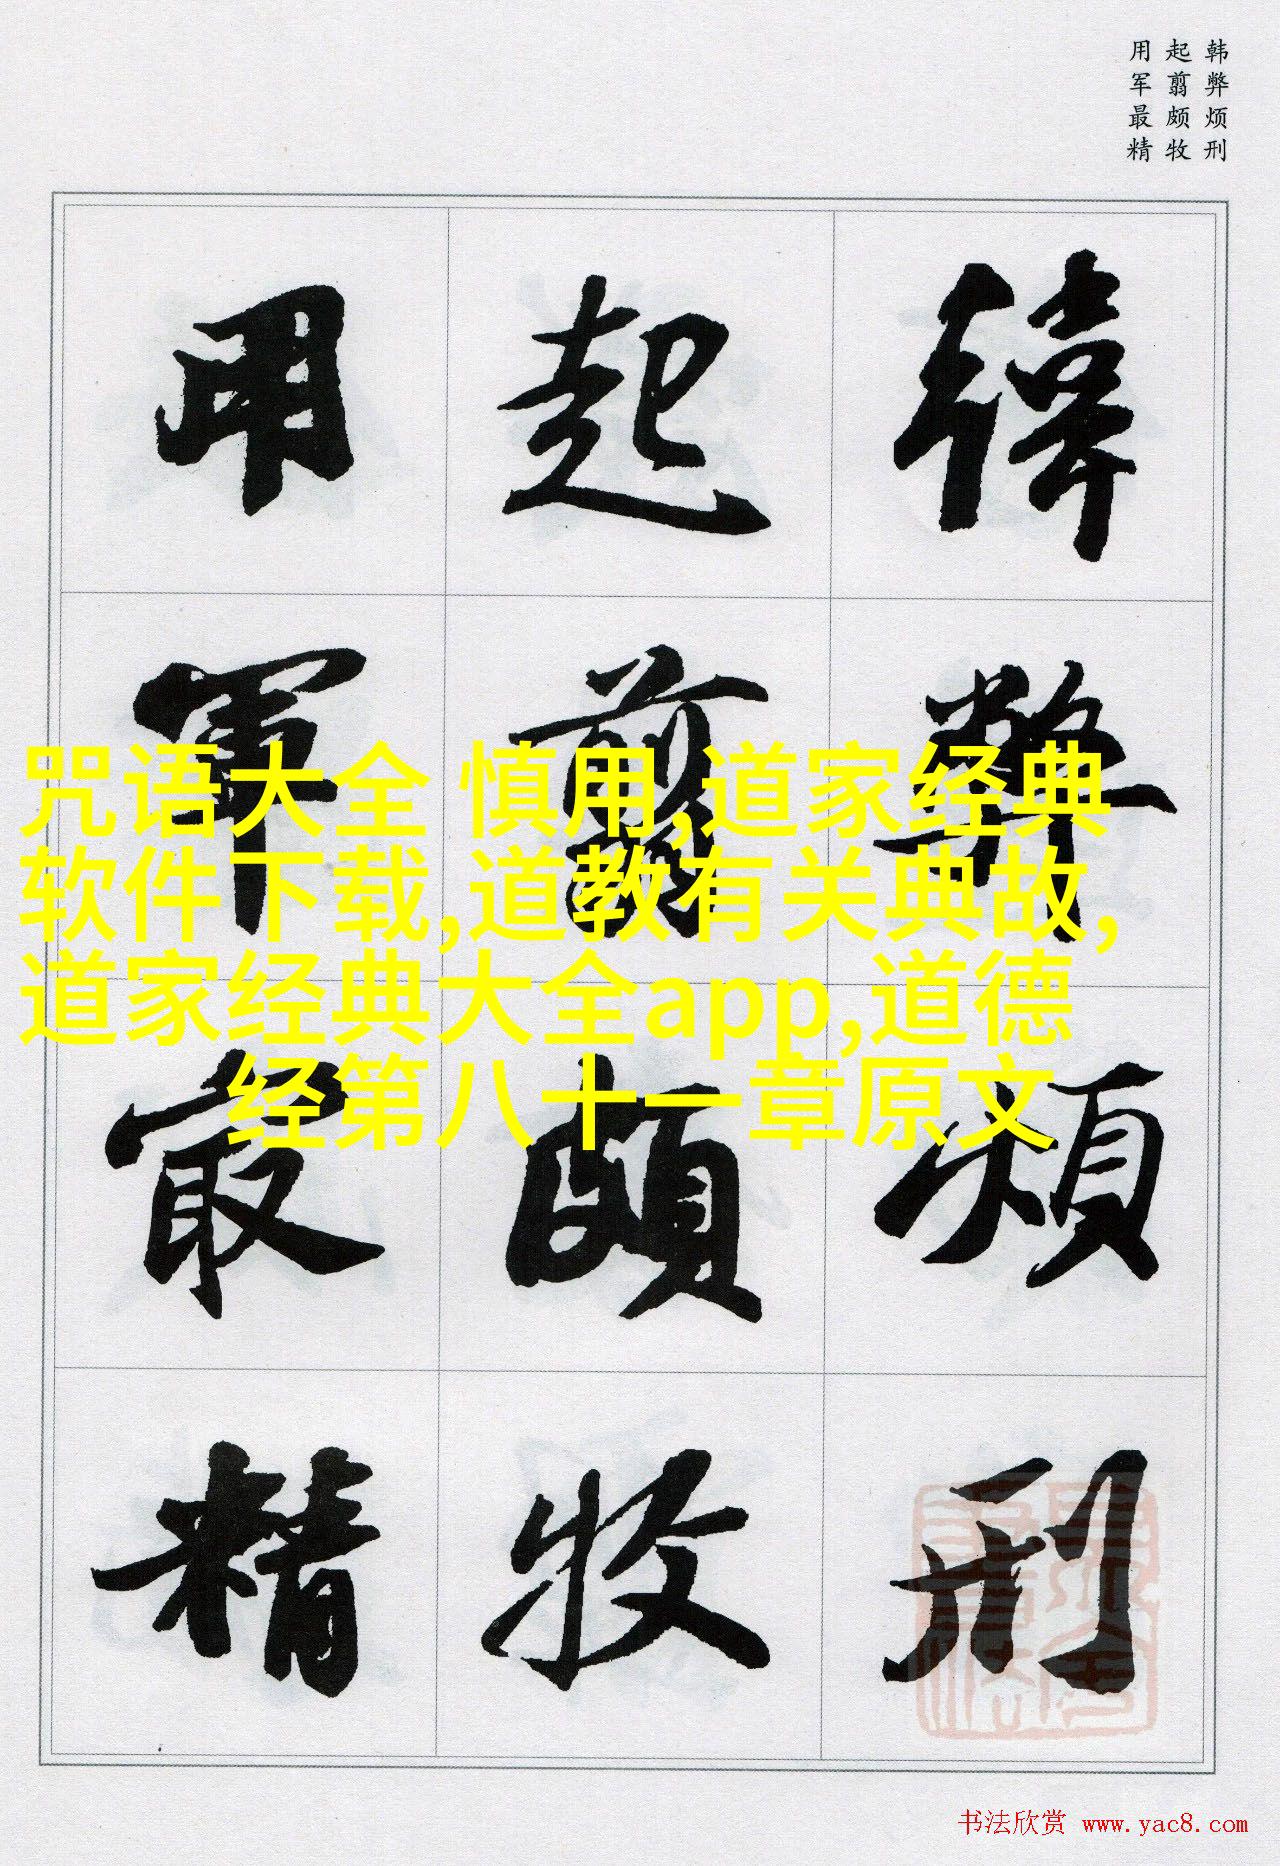 韩弊烦刑
起翦颇牧
用军最精
韓弊煩刑
起翦頗牧
用軍最精
咒语大全 慎用,道家经典
软件下载,道教有关典故,
道家经典大全app,道德
经第八十一章原文
书法欣赏 www.yac8.com